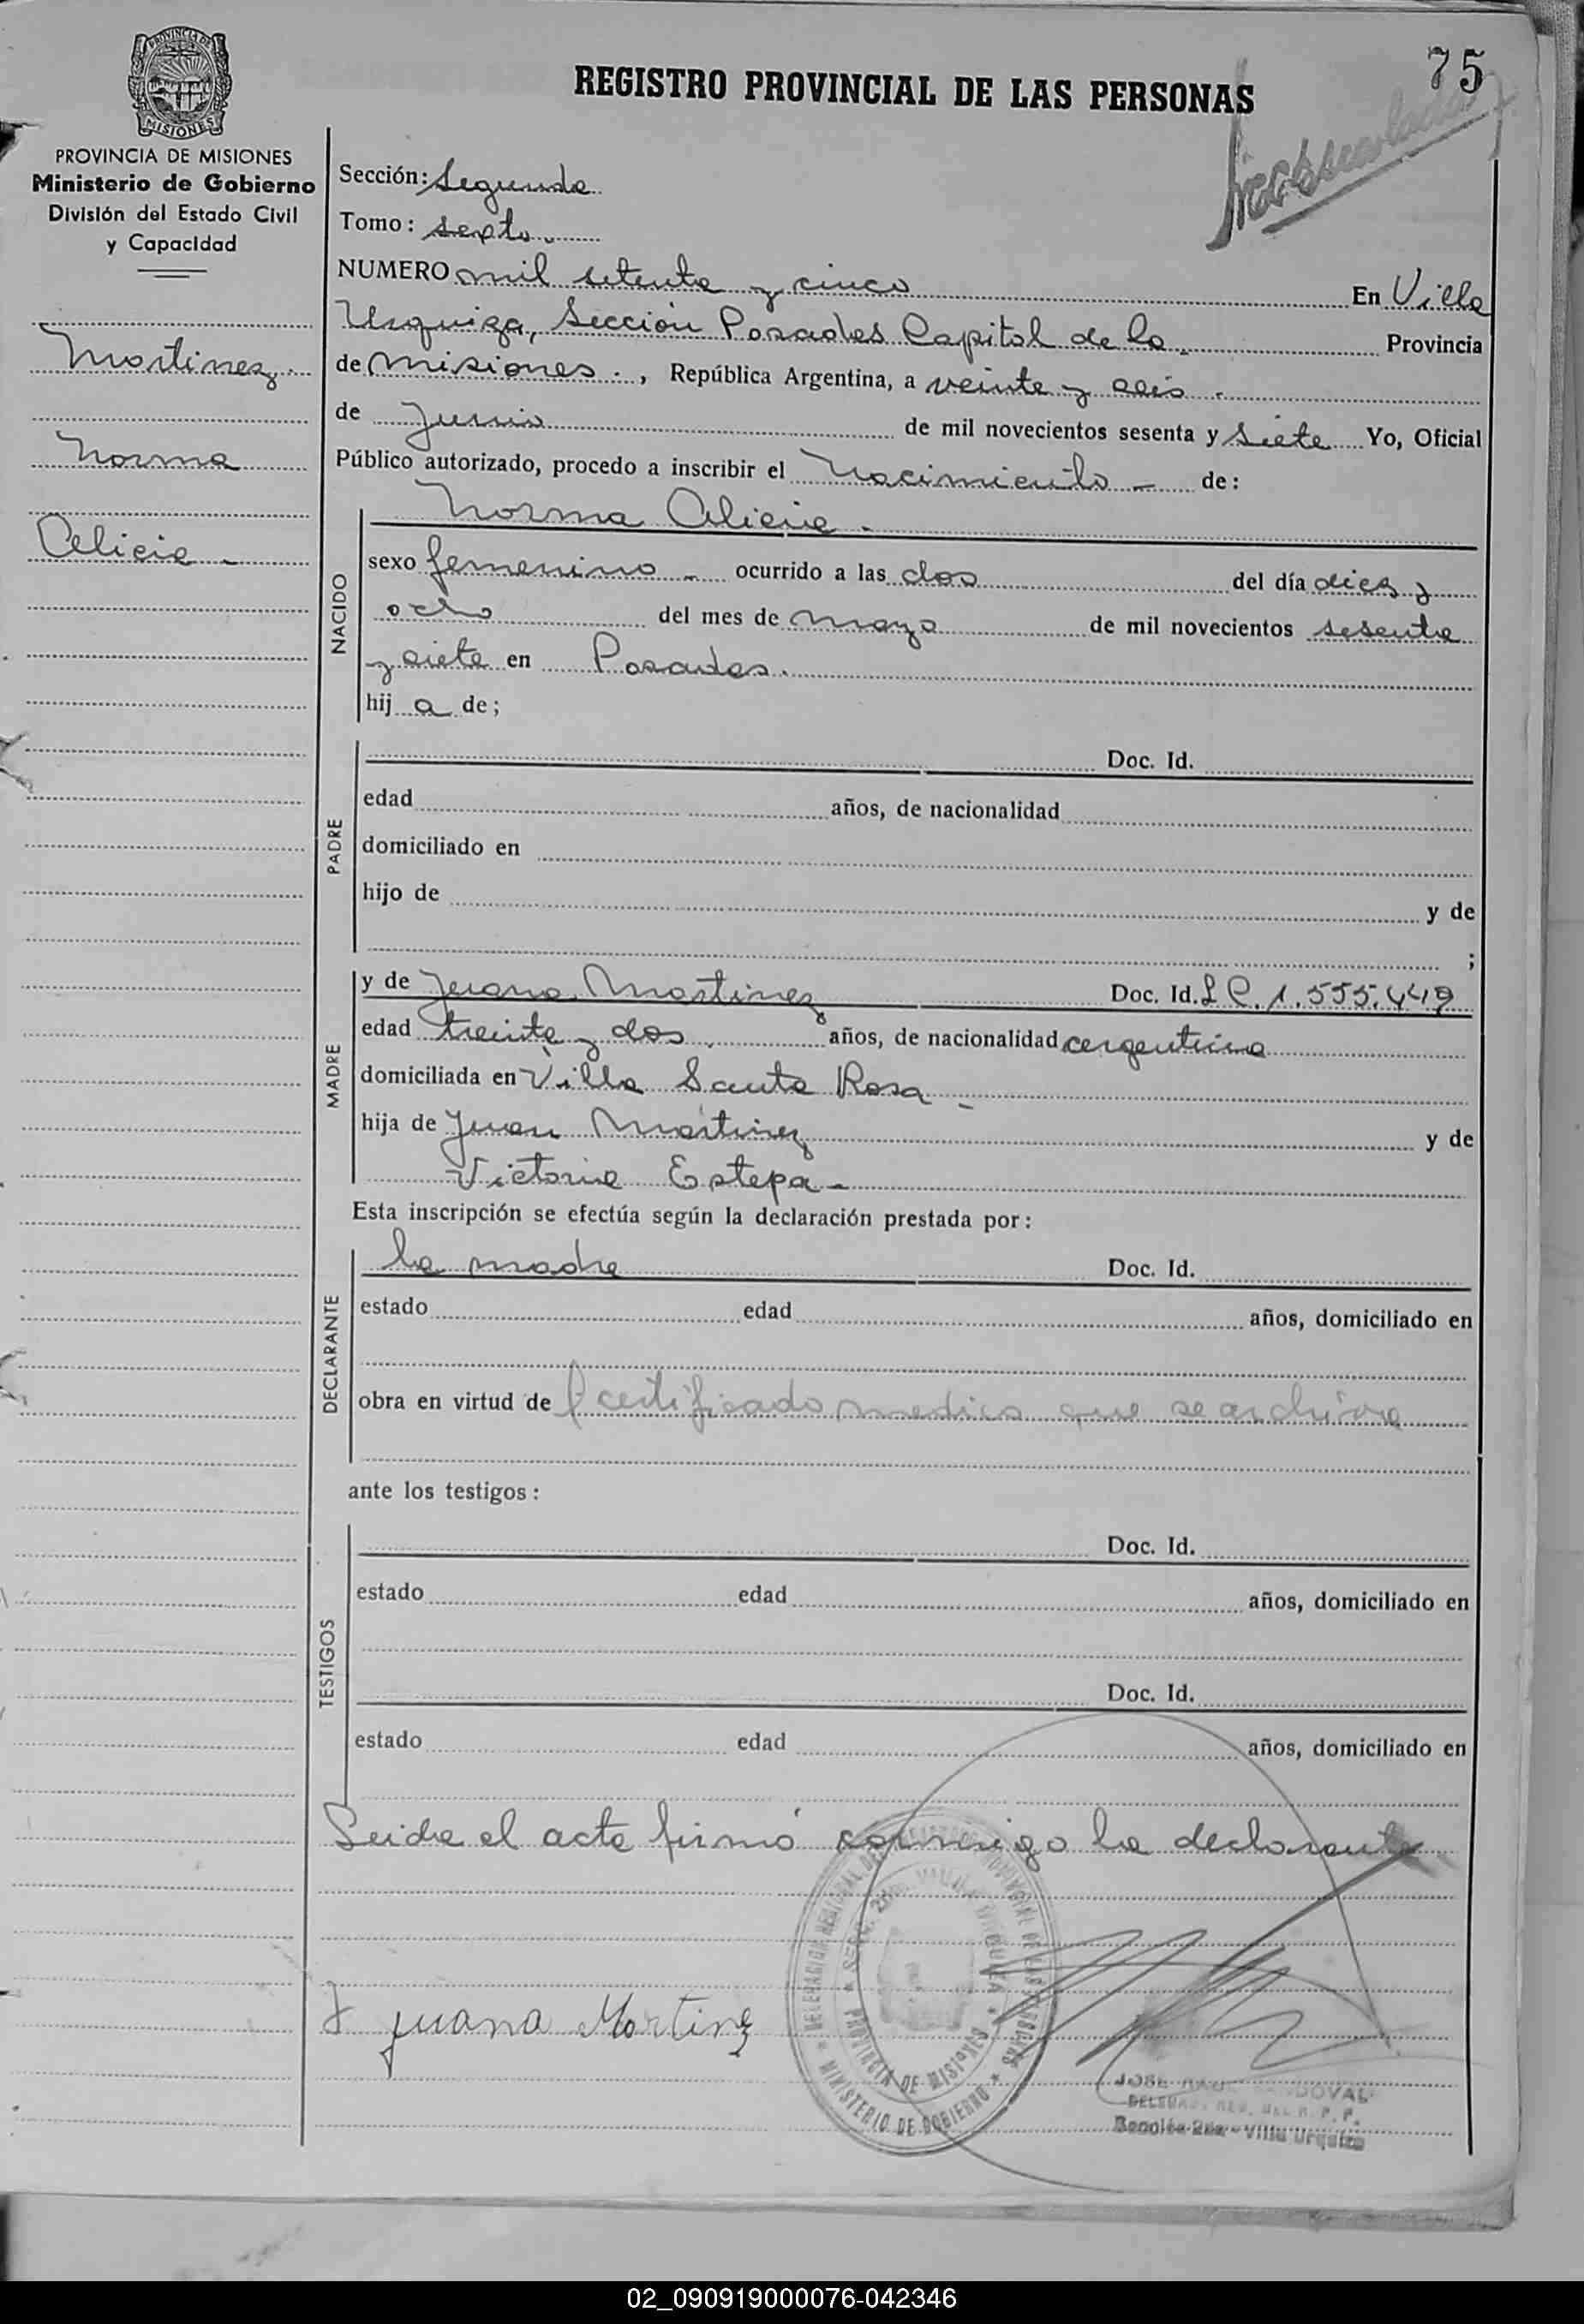 75
REGISTRO PROVINCIAL DE LAS PERSONAS
PROVINCIA DE
MISIONES
PROVINCIA DE MISIONES
Ministerio de Gobierno
División del Estado Civil
y Capacidad
Martinez.
Norma
Alicia -
Sección: Segunda
Tomo: sexto
NUMERO mil setenta y cinco En Villa
Urquiza, Sección Posadas Capital de la - Provincia
de misiones., República Argentina, a veinte y seis.
de Junio de mil novecientos sesenta y siete Yo, Oficial
Público autorizado, procedo a inscribir el Nacimiento - de:
Norma Alicia.
NACIDO
sexo femenino - ocurrido a las dos del día diez y
ocho del mes de mayo de mil novecientos sesenta
y siete en Posadas.
hij a de;
PADRE
Doc. Id.
edad años, de nacionalidad
domiciliado en
hijo de y de
;
MADRE
y de Juana Martinez Doc. Id. L C. 1.555.449
edad treinta y dos años, de nacionalidad argentina
domiciliada en Villa Santa Rosa -
hija de Juan Martinez y de
Victoria Estepa -
Esta inscripción se efectúa según la declaración prestada por:
DECLARANTE
la madre Doc. Id.
estado edad años, domiciliado en
obra en virtud de l certificado medico que se archiva
ante los testigos:
TESTIGOS
Doc. Id.
estado edad años, domiciliado en
Doc. Id.
estado edad años, domiciliado en
Leida el acta firmó conmigo la declarante
Juana Martinez
PROVINCIA DE MISIONES
MINISTERIO DE GOBIERNO
JOSE RAUL SANDOVAL
DELEGADO REG. DEL R. P. P.
Sección 2da - Villa Urquiza
02_090919000076-042346